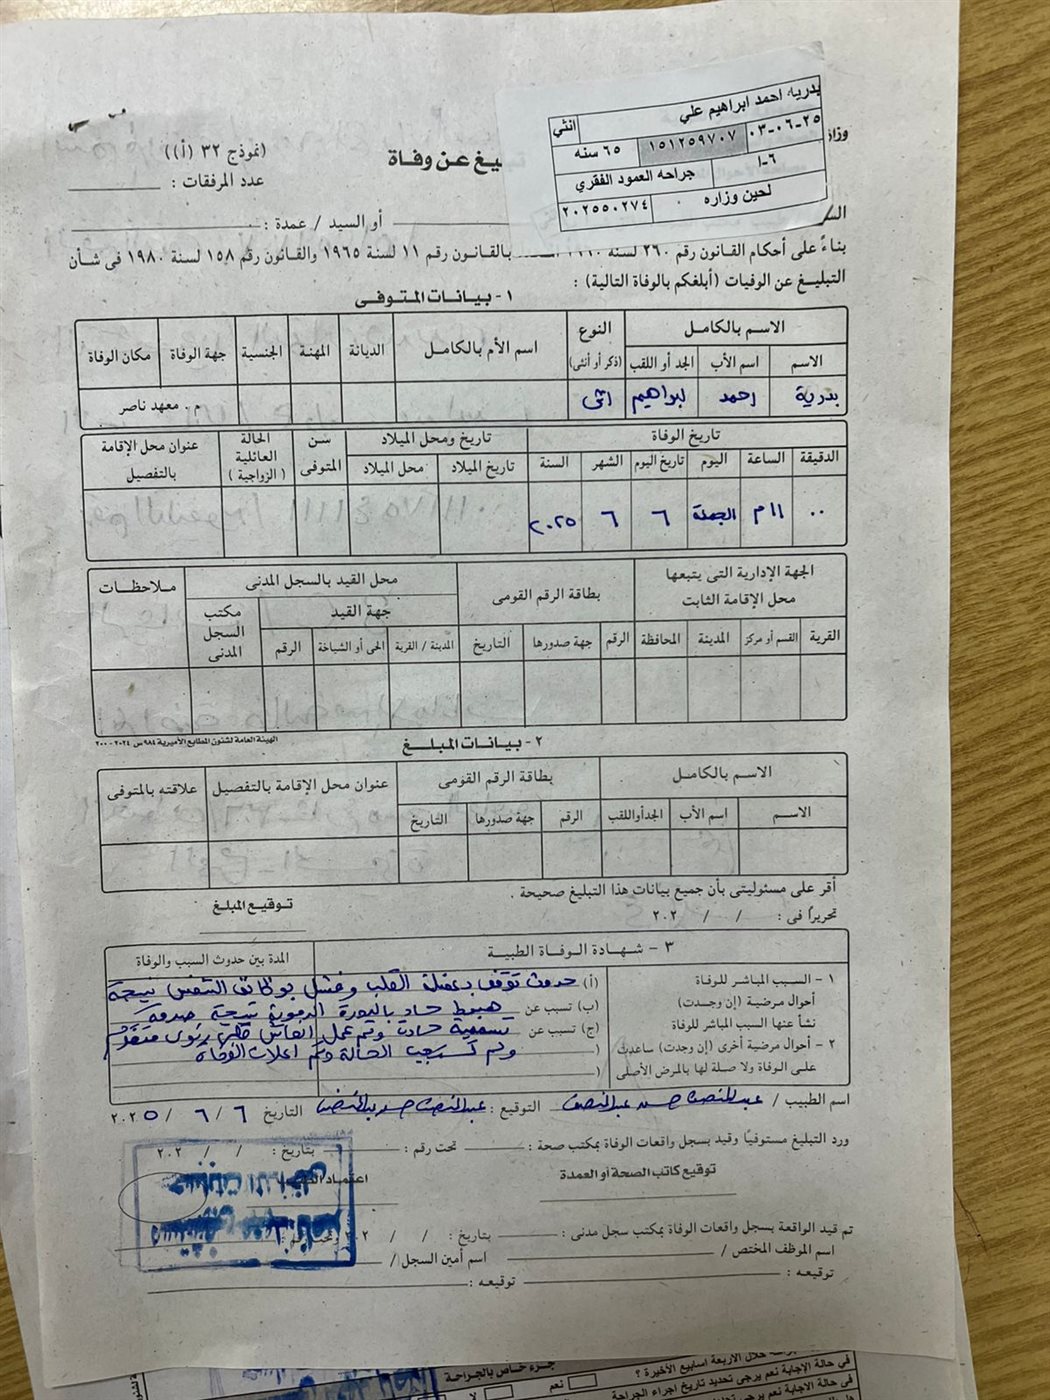 بدريه احمد ابراهيم علي
انثي
٠٣-٠٦-٢٥
١٥١٢٥٩٧٠٧
٦٥ سنه
٦-ا
جراحه العمود الفقري
لحين وزاره
٢٠٢٥٥٠٢٧٤
وزار
(نموذج ٣٢ (أ))
يغ عن وفاة
عدد المرفقات :
الس
أو السيد / عمدة :
بناءً على أحكام القانون رقم ٢٦٠ لسنة ١٩٦٠ بالقانون رقم ١١ لسنة ١٩٦٥ والقانون رقم ١٥٨ لسنة ١٩٨٠ فى شأن
التبليغ عن الوفيات (أبلغكم بالوفاة التالية) :
١ - بيانات المتوفى
الاسم بالكامل النوع (ذكر أو أنثى) اسم الأم بالكامل الديانة المهنة الجنسية جهة الوفاة مكان الوفاة
الاسم اسم الأب الجد أو اللقب
بدرية احمد ابراهيم انثى م . معهد ناصر
تاريخ الوفاة تاريخ ومحل الميلاد سن المتوفى الحالة العائلية (الزواجية) عنوان محل الإقامة بالتفصيل
الدقيقة الساعة اليوم تاريخ اليوم الشهر السنة تاريخ الميلاد محل الميلاد
٠٠ ١١ م الجمعة ٦ ٦ ٢٠٢٥
الجهة الإدارية التى يتبعها محل الإقامة الثابت بطاقة الرقم القومى محل القيد بالسجل المدنى ملاحظات
جهة القيد مكتب السجل المدنى
القرية القسم أو مركز المدينة المحافظة الرقم جهة صدورها التاريخ المدينة / القرية الحى أو الشياخة الرقم
الهيئة العامة لشئون المطابع الأميرية ٩٨٤ س ٢٠٢٤ - ٢٠٠
٢ - بيانات المبلغ
الاسم بالكامل بطاقة الرقم القومى عنوان محل الإقامة بالتفصيل علاقته بالمتوفى
الاسم اسم الأب الجد أو اللقب الرقم جهة صدورها التاريخ
أقر على مسئوليتى بأن جميع بيانات هذا التبليغ صحيحة .
توقيع المبلغ
تحريرًا فى : / / ٢٠٢
٣ - شهادة الوفاة الطبية المدة بين حدوث السبب والوفاة
١ - السبب المباشر للوفاة (أ) حدوث توقف بعضلة القلب وفشل بوظائف التنفس نتيجة
أحوال مرضية (إن وجدت) (ب) تسبب عن هبوط حاد بالدورة الدموية نتيجة صدمة
نشأ عنها السبب المباشر للوفاة (ج) تسبب عن تسممية حادة وتم عمل انعاش قلبي رئوي متقدم
٢ - أحوال مرضية أخرى (إن وجدت) ساعدت ( ولم تستجب الحالة وتم اعلان الوفاة
على الوفاة ولا صلة لها بالمرض الأصلى (
اسم الطبيب / عبدالمنصف حسن عبدالمنصف التوقيع : عبدالمنصف حسن عبدالمنصف التاريخ ٦ / ٦ / ٢٠٢٥
ورد التبليغ مستوفيًا وقيد بسجل واقعات الوفاة بمكتب صحة : تحت رقم : بتاريخ : / / ٢٠٢
توقيع كاتب الصحة أو العمدة اعتماد
تم قيد الواقعة بسجل واقعات الوفاة بمكتب سجل مدنى : بتاريخ : / / ٢٠٢
اسم الموظف المختص / اسم أمين السجل /
توقيعه : توقيعه :
جزء خاص بالجراحة
خلال الأربعة اسابيع الأخيرة ؟ نعم لا
فى حالة الاجابة نعم يرجى تحديد تاريخ اجراء الجراحة